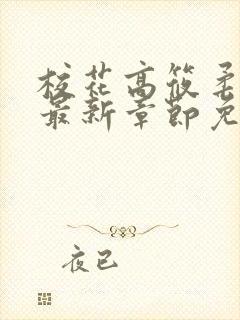 校花高筱柔
最新章节免
夜已